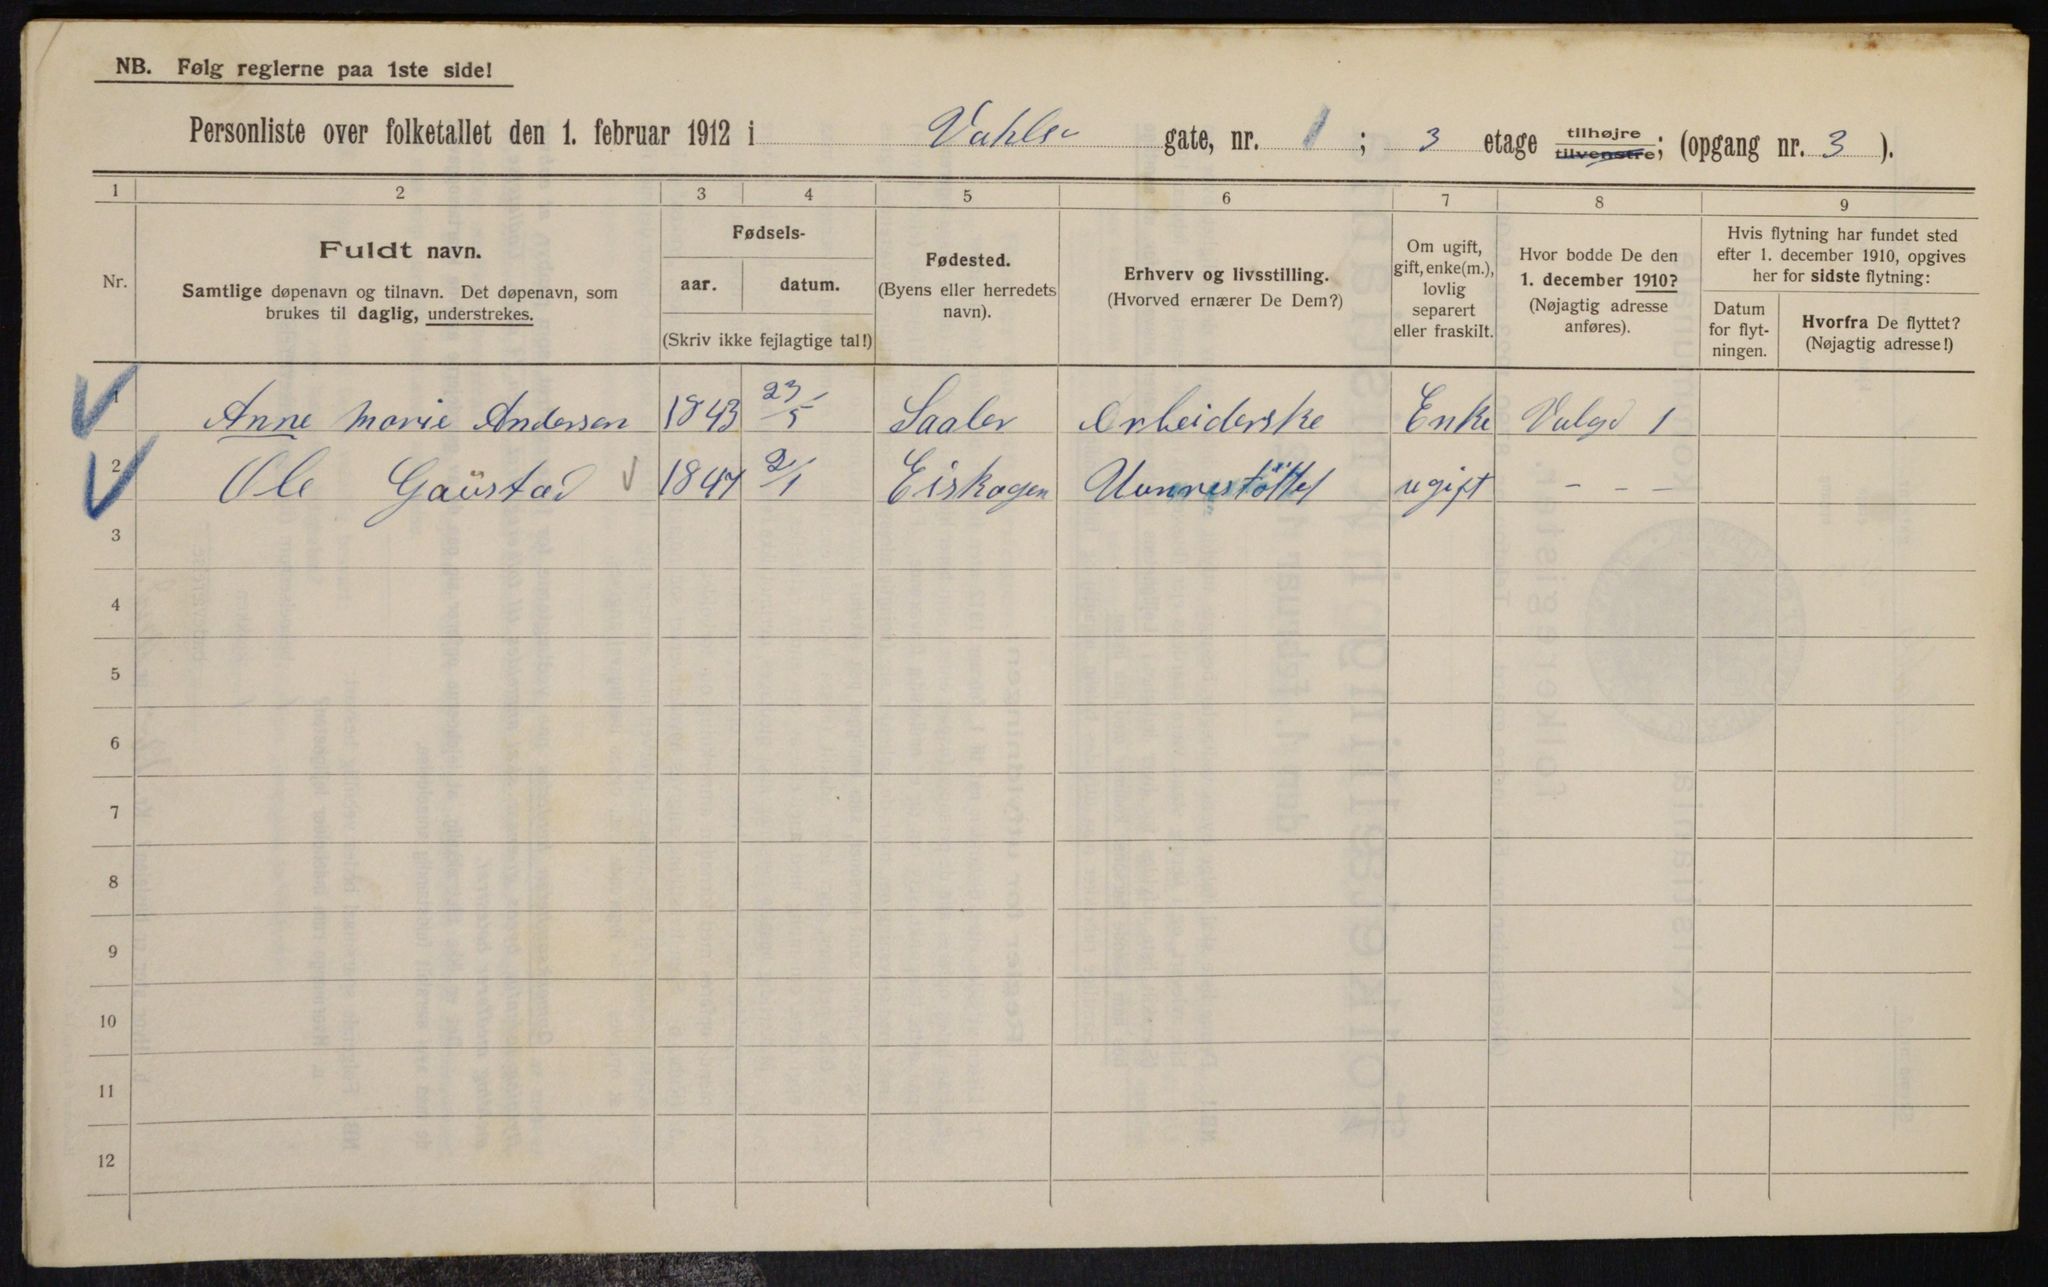 NB. Følg reglerne paa 1ste side!
Personliste over folketallet den 1. februar 1912 i Vahls gate, nr. 1; 3 etage tilhøjre tilvenstre; (opgang nr. 3).
1 2 3 4 5 6 7 8 9
Nr.
Fuldt navn.
Samtlige døpenavn og tilnavn. Det døpenavn, som
brukes til daglig, understrekes.
Fødsels-
aar. datum.
(Skriv ikke fejlagtige tal!)
Fødested.
(Byens eller herredets
navn).
Erhverv og livsstilling.
(Hvorved ernærer De Dem?)
Om ugift,
gift, enke(m.),
lovlig
separert
eller fraskilt.
Hvor bodde De den
1. december 1910?
(Nøjagtig adresse
anføres).
Hvis flytning har fundet sted
efter 1. december 1910, opgives
her for sidste flytning:
Datum
for flyt-
ningen.
Hvorfra De flyttet?
(Nøjagtig adresse!)
1 Anne Marie Andersen 1843 23/5 Arbeiderske Enke 1
2 Ole Gaustad 1847 2/1 Eiskogen ugift - - -
3
4
5
6
7
8
9
10
11
12